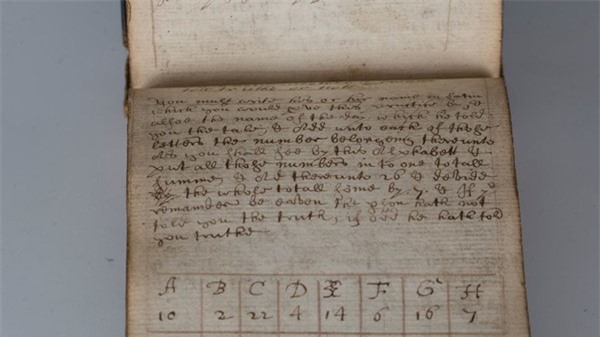 you must write his or her name in Latin
which you would prve this practice by &
allsoe the name of the day which he told
you the tale, & Add unto each of those
letters the number belongeing thereunto
As you shall see by this Alphabett &
put all those numbers in to one totall
summe, & Ad thereunto 26 & devide
the whole totall same by 7, & If ye
remainder be eaven the p'son hath not
told you the truth, if odd he hath told
you truthe
A B C D E F G H
10 2 22 4 14 6 16 7